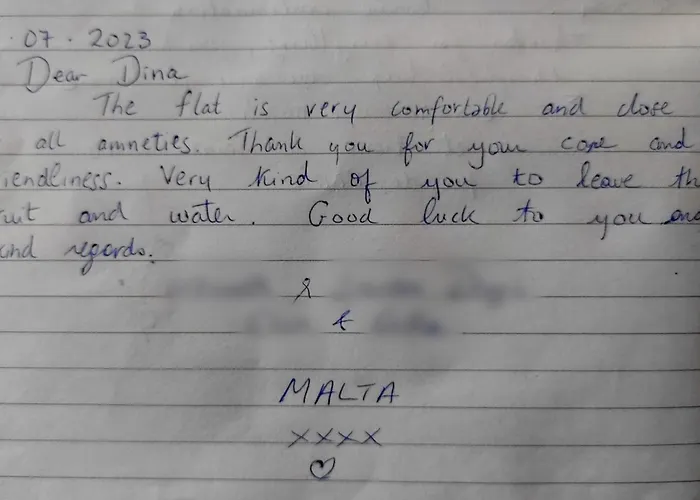 . 07 . 2023
Dear Dina
The flat is very comfortable and close
all amneties. Thank you for your care and
iendliness. Very kind of you to leave th
uit and water. Good luck to you and
ind regards.
&
&
MALTA
xxxx
♡